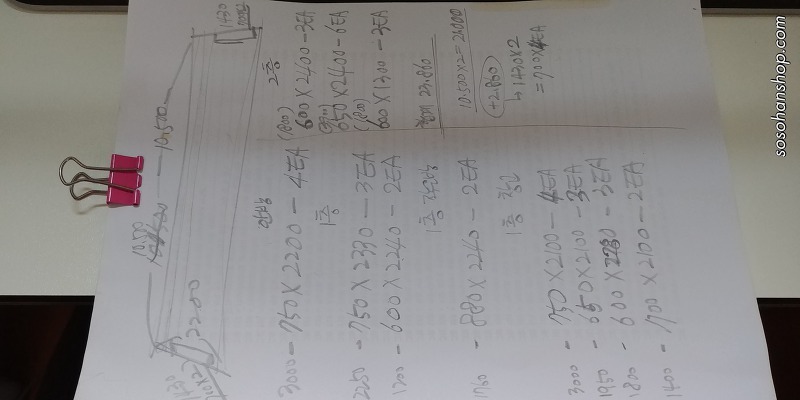 10.500
2200
1430
안방
3000 - 750 X 2200 - 4EA
1층
2250 - 750 X 2330 - 3EA
1200 - 600 X 2240 - 2EA
1층 작은방
1760 - 880 X 2240 - 2EA
1층 창문
3000 - 750 X 2100 - 4EA
1950 - 650 X 2100 - 3EA
1800 - 600 X 2280 - 3EA
1400 - 700 X 2100 - 2EA
2층
(1800)
600 X 2400 - 3EA
650 X 2400 - 6EA
(1800)
600 X 1300 - 3EA
23.860
10.500 X 2 = 21000
+2.860
↳ 1430 X 2
= 700 X 4EA
sosohanshop.com